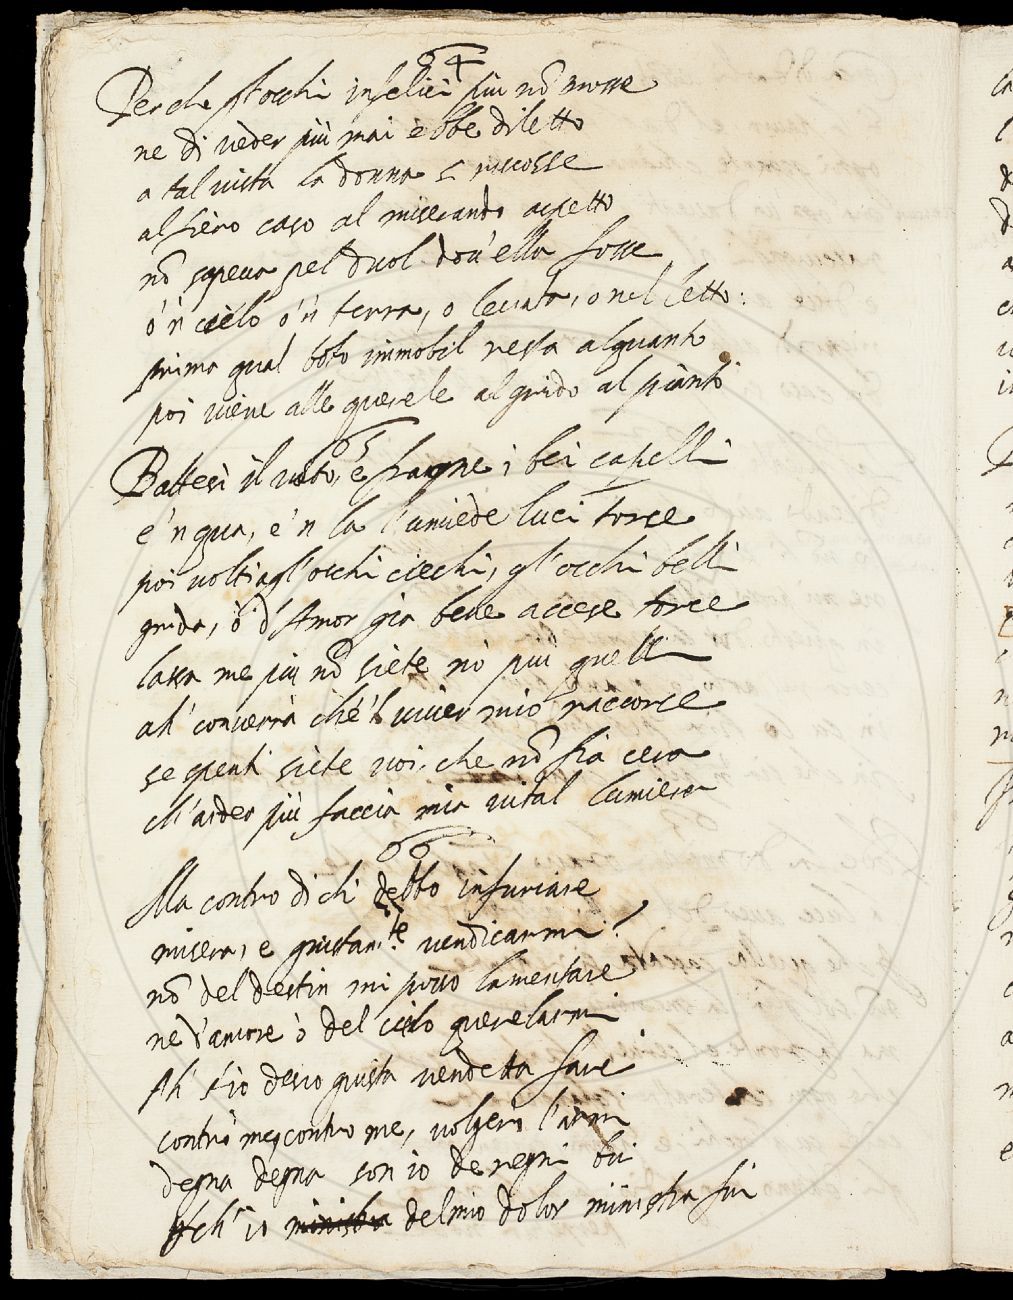 64
Perche gl'occhi infelici più nõ mosse
ne di veder più mai ebbe diletto
a tal vista la donna si riscosse
al fiero caso al miserando aspetto
nõ sapeva pel duol dov'ella fosse
o'n cielo o'n terra, o levata, o nel letto:
prima qual boto immobil resta alquanto
poi viene alle querele al grido al pianto
65
Battesi il volto, e frange i bei capelli
e'n qua, e'n la l'umiede luci torce
poi volti agl'occhi ciechi, gl'occhi belli
grida, ò d'Amor gia bene accese torce
lassa me più nõ siete nò più quelli
ah' converrà che'l viver mio raccorce
se spenti siete voi, che nõ fia cera
ch'arder più faccia mia vital lumiera
66
Ma contro di chi debbo infuriare
misera, e giustam.te vendicarmi?
nõ del destin mi posso lamentare
ne d'amore ò del cielo querelarmi
Ah' s'io devo giusta vendetta fare
contro me, contro me, volgerò l'armi
degna degna son io de regni bui
ch'io ministra del mio dolor ministra fui